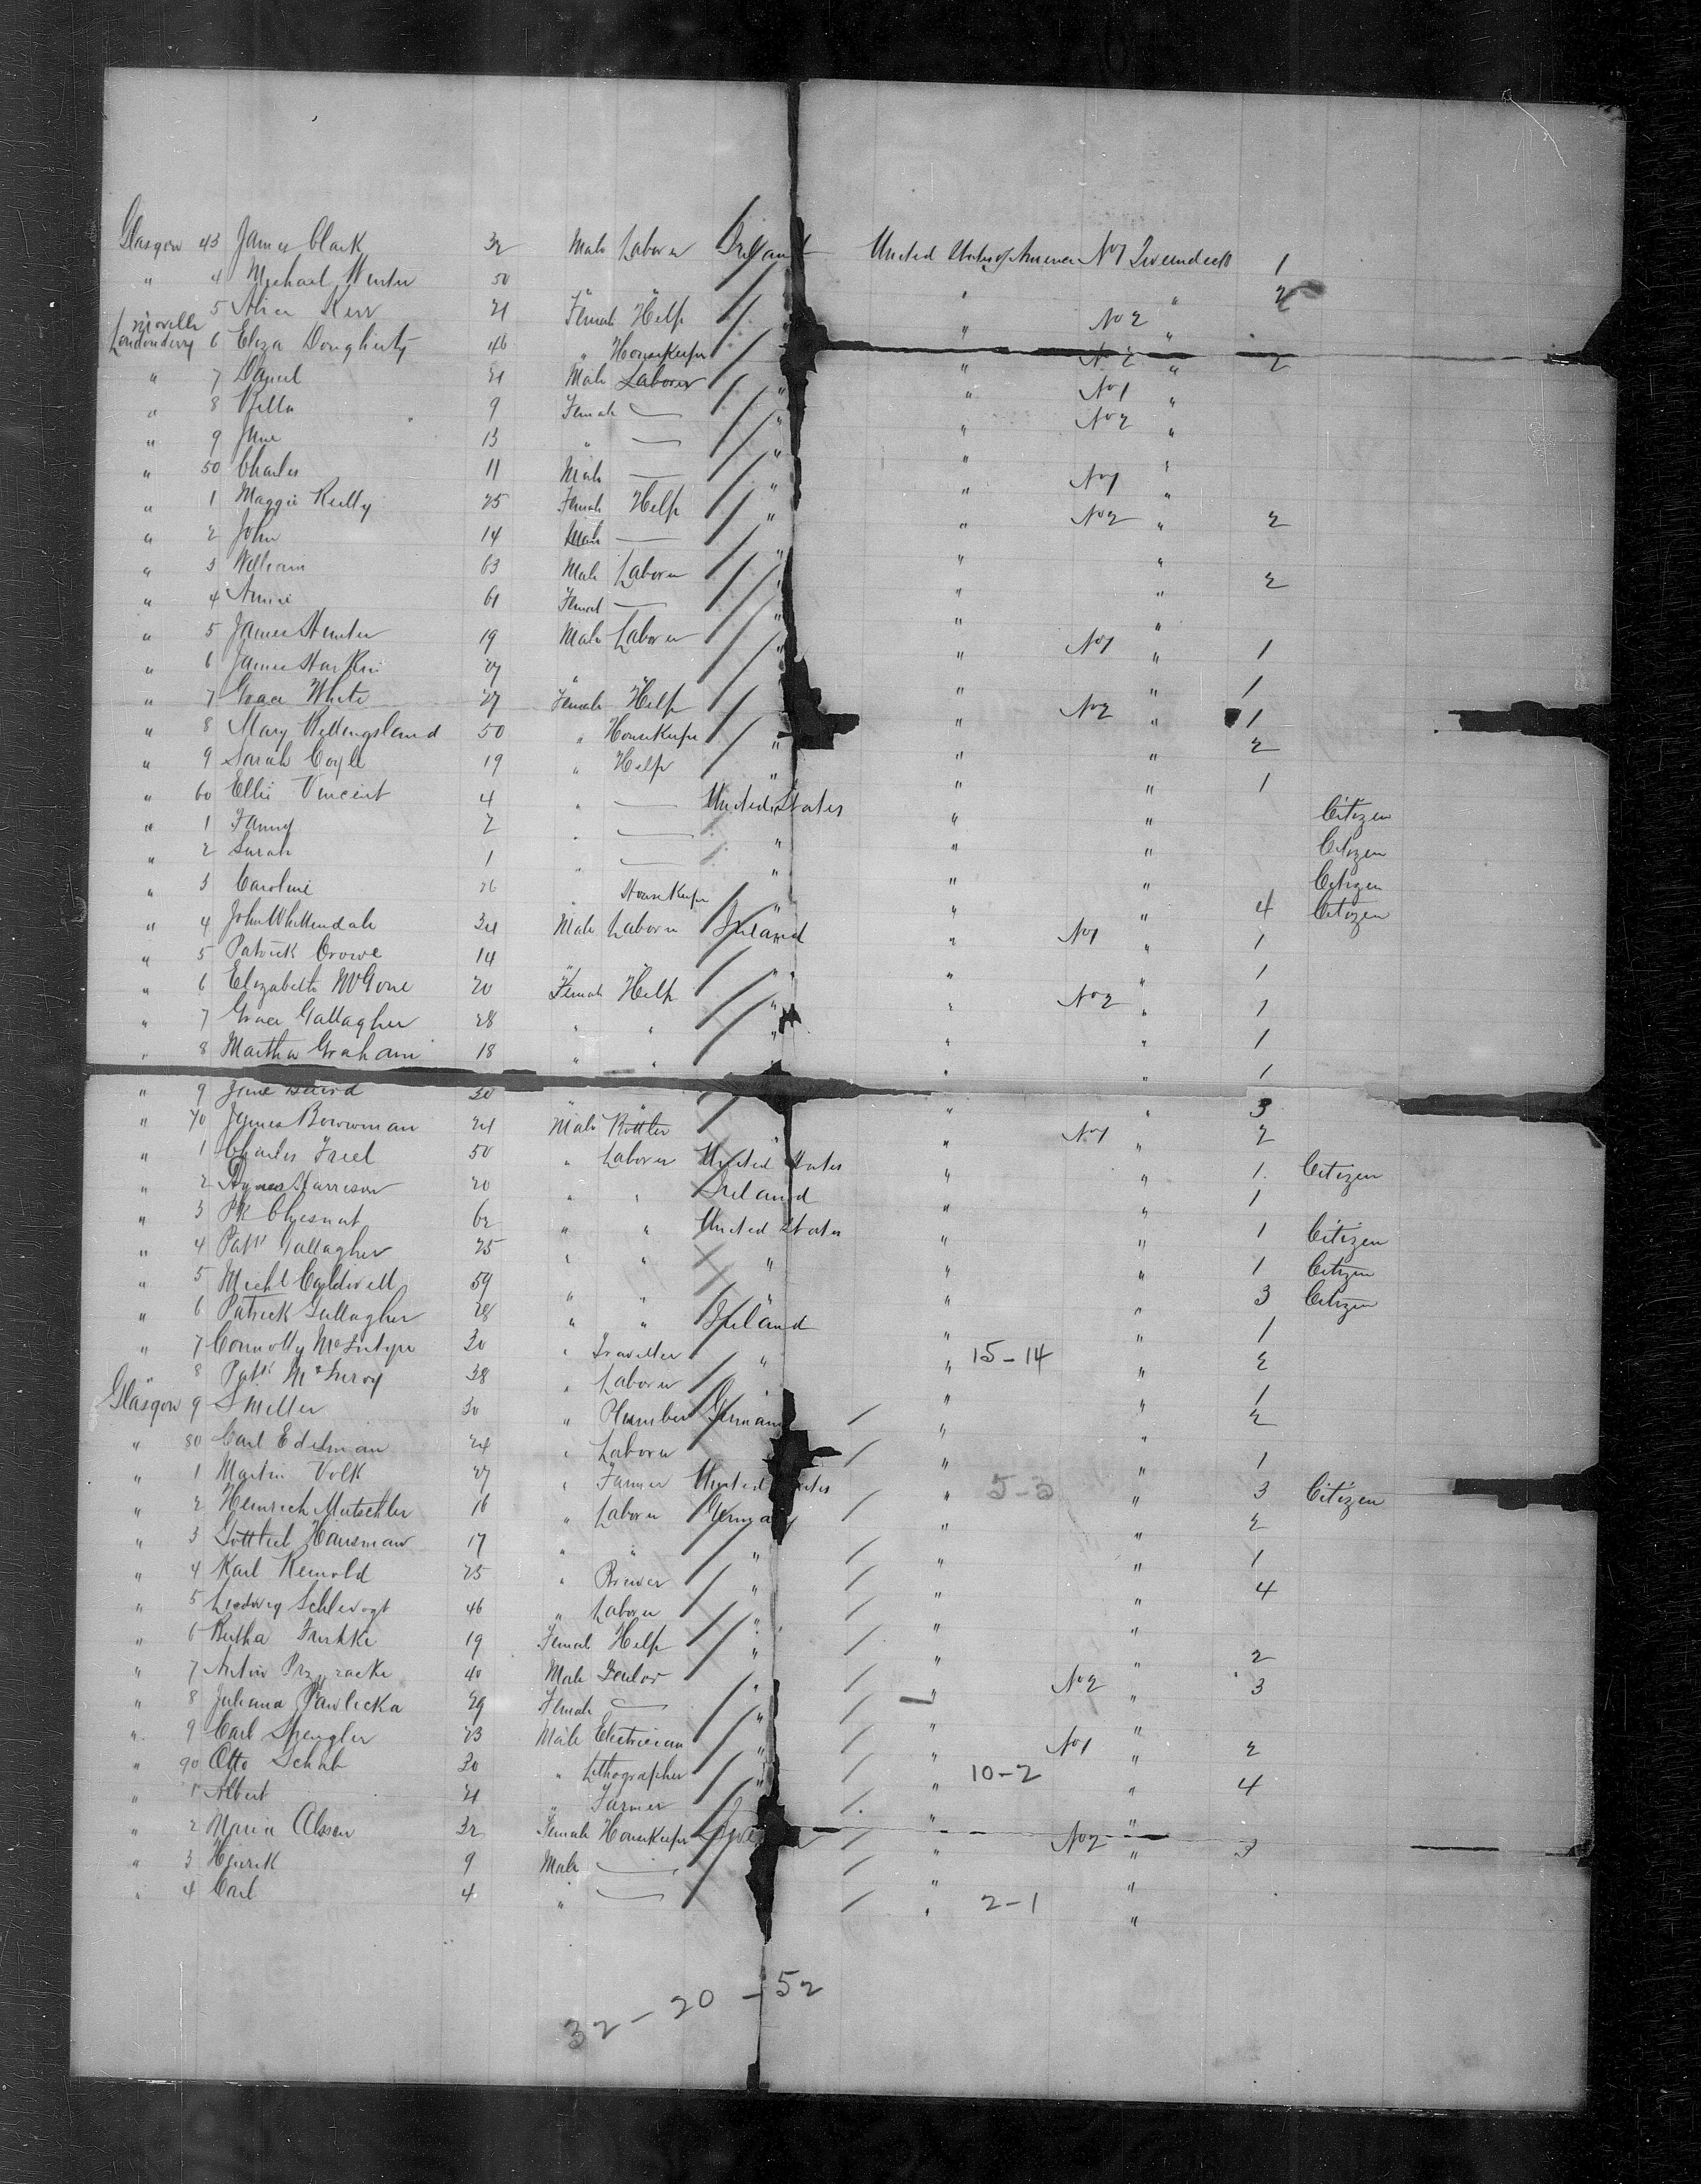 Glasgow 43 James Clark 32 Male Laborer Ireland United States of America No 1 Tweendeck 1
" 4 Michael Hunter 50 " " " " " 2
" 5 Alice Kerr 21 Female Help " " No 2 "
Moville Londonderry 6 Eliza Dougherty 46 " Housekeeper " " No 2 " 2
" 7 Daniel 21 Male Laborer " " No 1 "
" 8 Bella 9 Female — " " No 2 "
" 9 Jane 13 " — " " "
" 50 Charles 11 Male — " " No 1 "
" 1 Maggie Reilly 25 Female Help " " No 2 " 2
" 2 John 14 Male — " " "
" 3 William 63 Male Laborer " " " 2
" 4 Annie 61 Female — " " "
" 5 James Hunter 19 Male Laborer " " No 1 " 1
" 6 James Harkin 27 " " " " " 1
" 7 Grace White 27 Female Help " " No 2 " 1
" 8 Mary Hollingsland 50 " Housekeeper " " " 2
" 9 Sarah Coyle 19 " Help " " " 1
" 60 Ellis Vincent 4 " — United States " " Citizen
" 1 Fanny 2 " — " " " Citizen
" 2 Sarah 1 " — " " " Citizen
" 3 Caroline 26 " Housekeeper " " " 4 Citizen
" 4 John Whittendale 34 Male Laborer Ireland " No 1 " 1
" 5 Patrick Crowe 14 " " " " " 1
" 6 Elizabeth McGone 20 Female Help " " No 2 " 1
" 7 Grace Gallagher 28 " " " " " 1
" 8 Martha Graham 18 " " " " " 1
" 9 Jane Baird 30 " " " " 3
" 70 James Bowman 24 Male " No 1 " 2
" 1 Charles Friel 50 " Laborer United States " " 1 Citizen
" 2 Harrison 20 " " Ireland " " 1
" 3 Pk Chesnut 62 " " United States " " 1 Citizen
" 4 Patk Gallagher 25 " " " " " 1 Citizen
" 5 Michl Caldwell 59 " " " " " 3 Citizen
" 6 Patrick Gallagher 28 " " Ireland " " 1
" 7 Connolly McIntyre 30 " Traveller " " 15-14 " 2
" 8 Patk McInroy 38 " Laborer " " " 1
Glasgow 9 S Miller 30 " Plumber Germany " " 2
" 80 Carl Edelman 24 " Laborer " " " 1
" 1 Martin Volk 27 " Farmer United States " 5-3 " 3 Citizen
" 2 Heinrich Mutschler 16 " Laborer Germany " " 2
" 3 Gottlieb Hausman 17 " " " " " 1
" 4 Karl Reinold 25 " Brewer " " " 4
" 5 Ludwig Schlevogt 46 " Laborer " " "
" 6 Bertha 19 Female Help " " " 2
" 7 Anton 40 Male " " No 2 " 3
" 8 Juliana Pawlicka 29 Female — " " "
" 9 Carl Spengler 23 Male Electrician " " No 1 " 2
" 90 Otto Schab 30 " Lithographer " " 10-2 " 4
" 1 Albert 21 " Farmer " " "
" 2 Maria Olsson 32 Female Housekeeper " No 2 " 3
" 3 Henrik 9 Male — " "
" 4 Carl 4 " — " 2-1 "
32-20-52